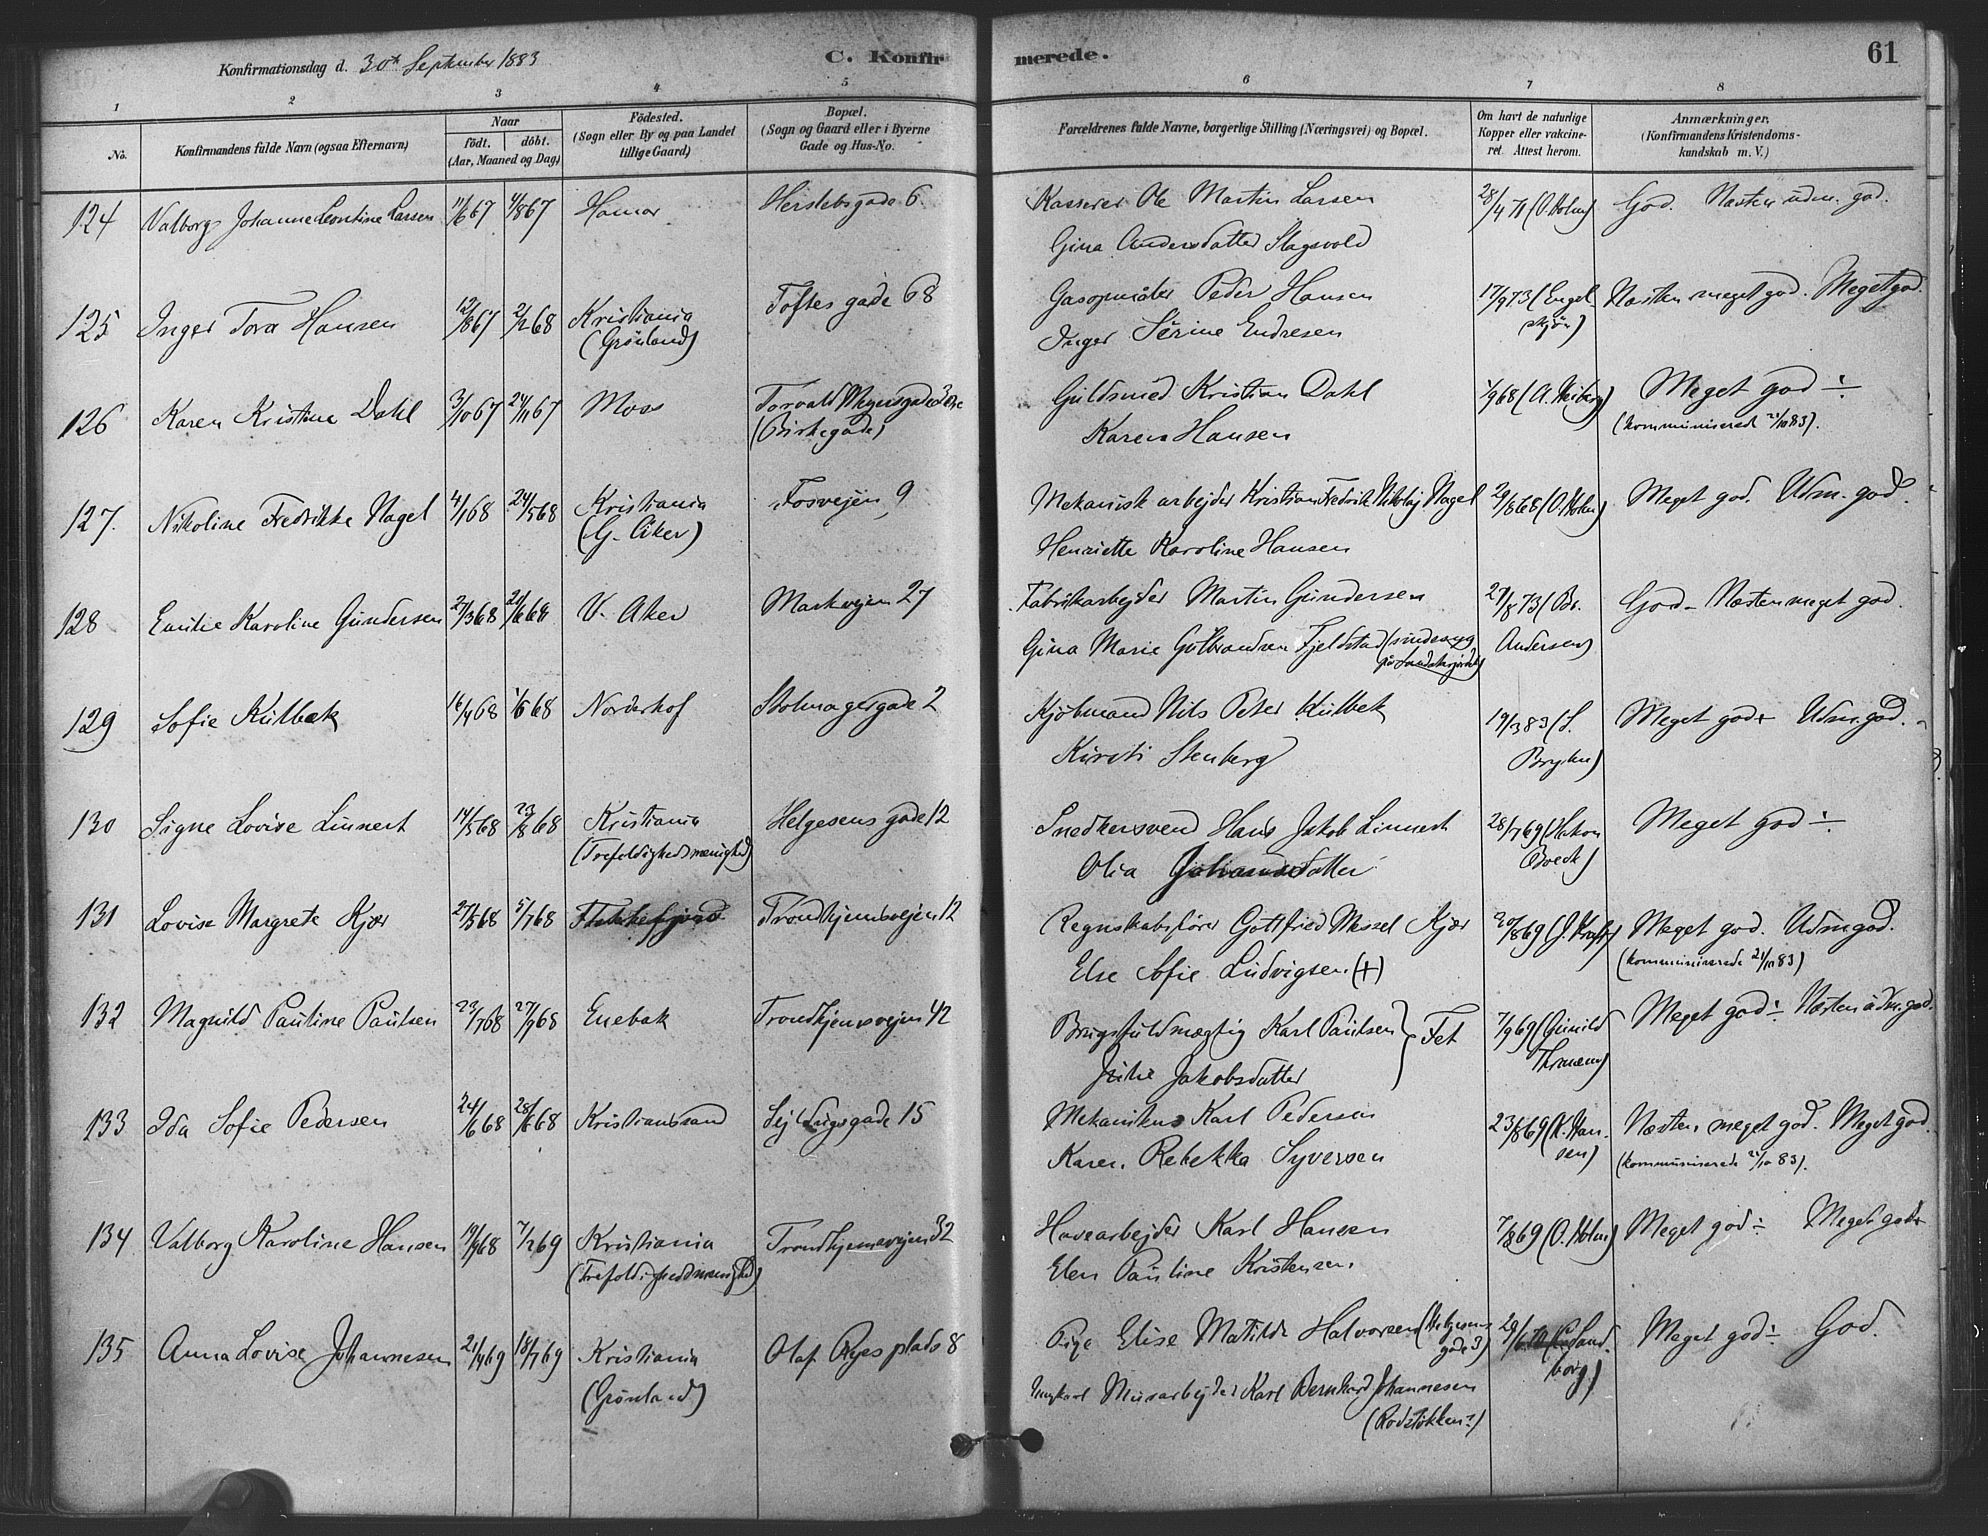 Konfirmationsdag d. 30te September 1883
C. Konfirmerede.
61
1 2 3 4 5 6 7 8
No.
Konfirmandens fulde Navn (ogsaa Efternavn)
Naar
födt. döbt.
(Aar, Maaned og Dag)
Födested.
(Sogn eller By og paa Landet
tillige Gaard)
Bopæl.
(Sogn og Gaard eller i Byerne
Gade og Hus-No.
Forældrenes fulde Navne, borgerlige Stilling (Næringsvei) og Bopæl.
Om havt de naturlige
Kopper eller vakcine-
ret. Attest herom.
Anmærkninger.
(Konfirmandens Kristendoms-
kundskab m. V.)
124 Valborg Johanne Leontine Larsen 11/6 67 4/8 67 Hamar Herslebsgade 6. Kasserer Ole Martin Larsen 28/4 71 (O. Holm) God. Næsten udm. god.
Gina Andersdatter Slagsvold
125 Inger Tora Hansen 12/8 67 2/2 68 Kristiania Toftes gade 68 Peder Hansen 17/9 73 (Engel
(Grønland) Inger Serine Endresen Næsten meget god. Meget god.
126 Karen Kristine Dahl 3/10 67 24/11 67 Moss Torvald Meyersgade
(Birkegade) Guldsmed Kristian Dahl 1/9 68 Meget god ÷
Karen Hansen (kommuniserede 21/10 83).
127. Nikoline Fredrikke Nagel 4/1 68 24/5 68 Kristiania Fosvejen 9 Mekanisk arbejder Kristian Fredrik Nikolaj Nagel 29/8 68 (O. Holm) Meget god. Udm. god.
(G. Aker) Henriette Karoline Hansen
128 Emilie Karoline Gundersen 27/3 68 21/6 68 V. Aker Markvejen 27 Fabrikarbejder Martin Gundersen 27/8 73 (Br.
Andersen) God - Næsten meget god.
Gina Marie Gulbrandsen Fjeldstad (sindssyg
129 Sofie Kulbæk 16/4 68 1/6 68 Norderhof Skomagergade 2 Kjøbmand Nils Peter Kulbek 19/3 83 (S. Meget god + Udm. god.
Kirsti Stenberg
130 Signe Lovise Linnert 14/5 68 23/8 68 Kristiania Helgesens gade 12 Snedkersvend Hans Jakob Linnert 28/7 69 (Hakon
Boeck) Meget god ÷.
(Trefoldighedsmenighed) Olia Johannesdatter
131 Lovise Margrete Kjær 27/5 68 5/7 68 Flekkefjord Trondhjemsvejen 12 Regnskabsfører Gottfried Messel Kjær 30/8 69 (J. Kraft) Meget god. Udm god.
Else Sofie Ludvigsen. (+) (kommuniserede 21/10 83)
132 Magnild Pauline Paulsen 23/7 68 27/9 68 Enebak Trondhjemsvejen 42 Brugsfuldmægtig Karl Paulsen } Fet 7/9 69 (Gunild Meget god ÷ Næsten udm. god.
Julie Jakobsdatter
133 Ida Sofie Pedersen 24/6 68 28/6 68 Kristianssand Sejldugsgade 15 Mekanikus Karl Pedersen 23/8 69 (K. Han-
sen) Næsten meget god. Meget god.
Karen Rebekka Syversen (kommuniserede 21/10 83).
134 Valborg Karoline Hansen 19/9 68 7/2 69 Kristiania Trondhjemsvejen 32 Havearbejder Karl Hansen 7/8 69 (O. Holm) Meget god ÷ Meget god +
(Trefoldighedsmenighed) Elen Pauline Kristensen.
135 Anna Lovise Johannesen 21/4 69 18/7 69 Kristiania Olaf Ryes plads 8 Pige Elise Matilde Halvorsen (Helgesens
gade 3) Meget god ÷ God.
(Grønland) Ungkarl Murarbejder Karl Bernhard Johannesen
(Rodeløkken?)